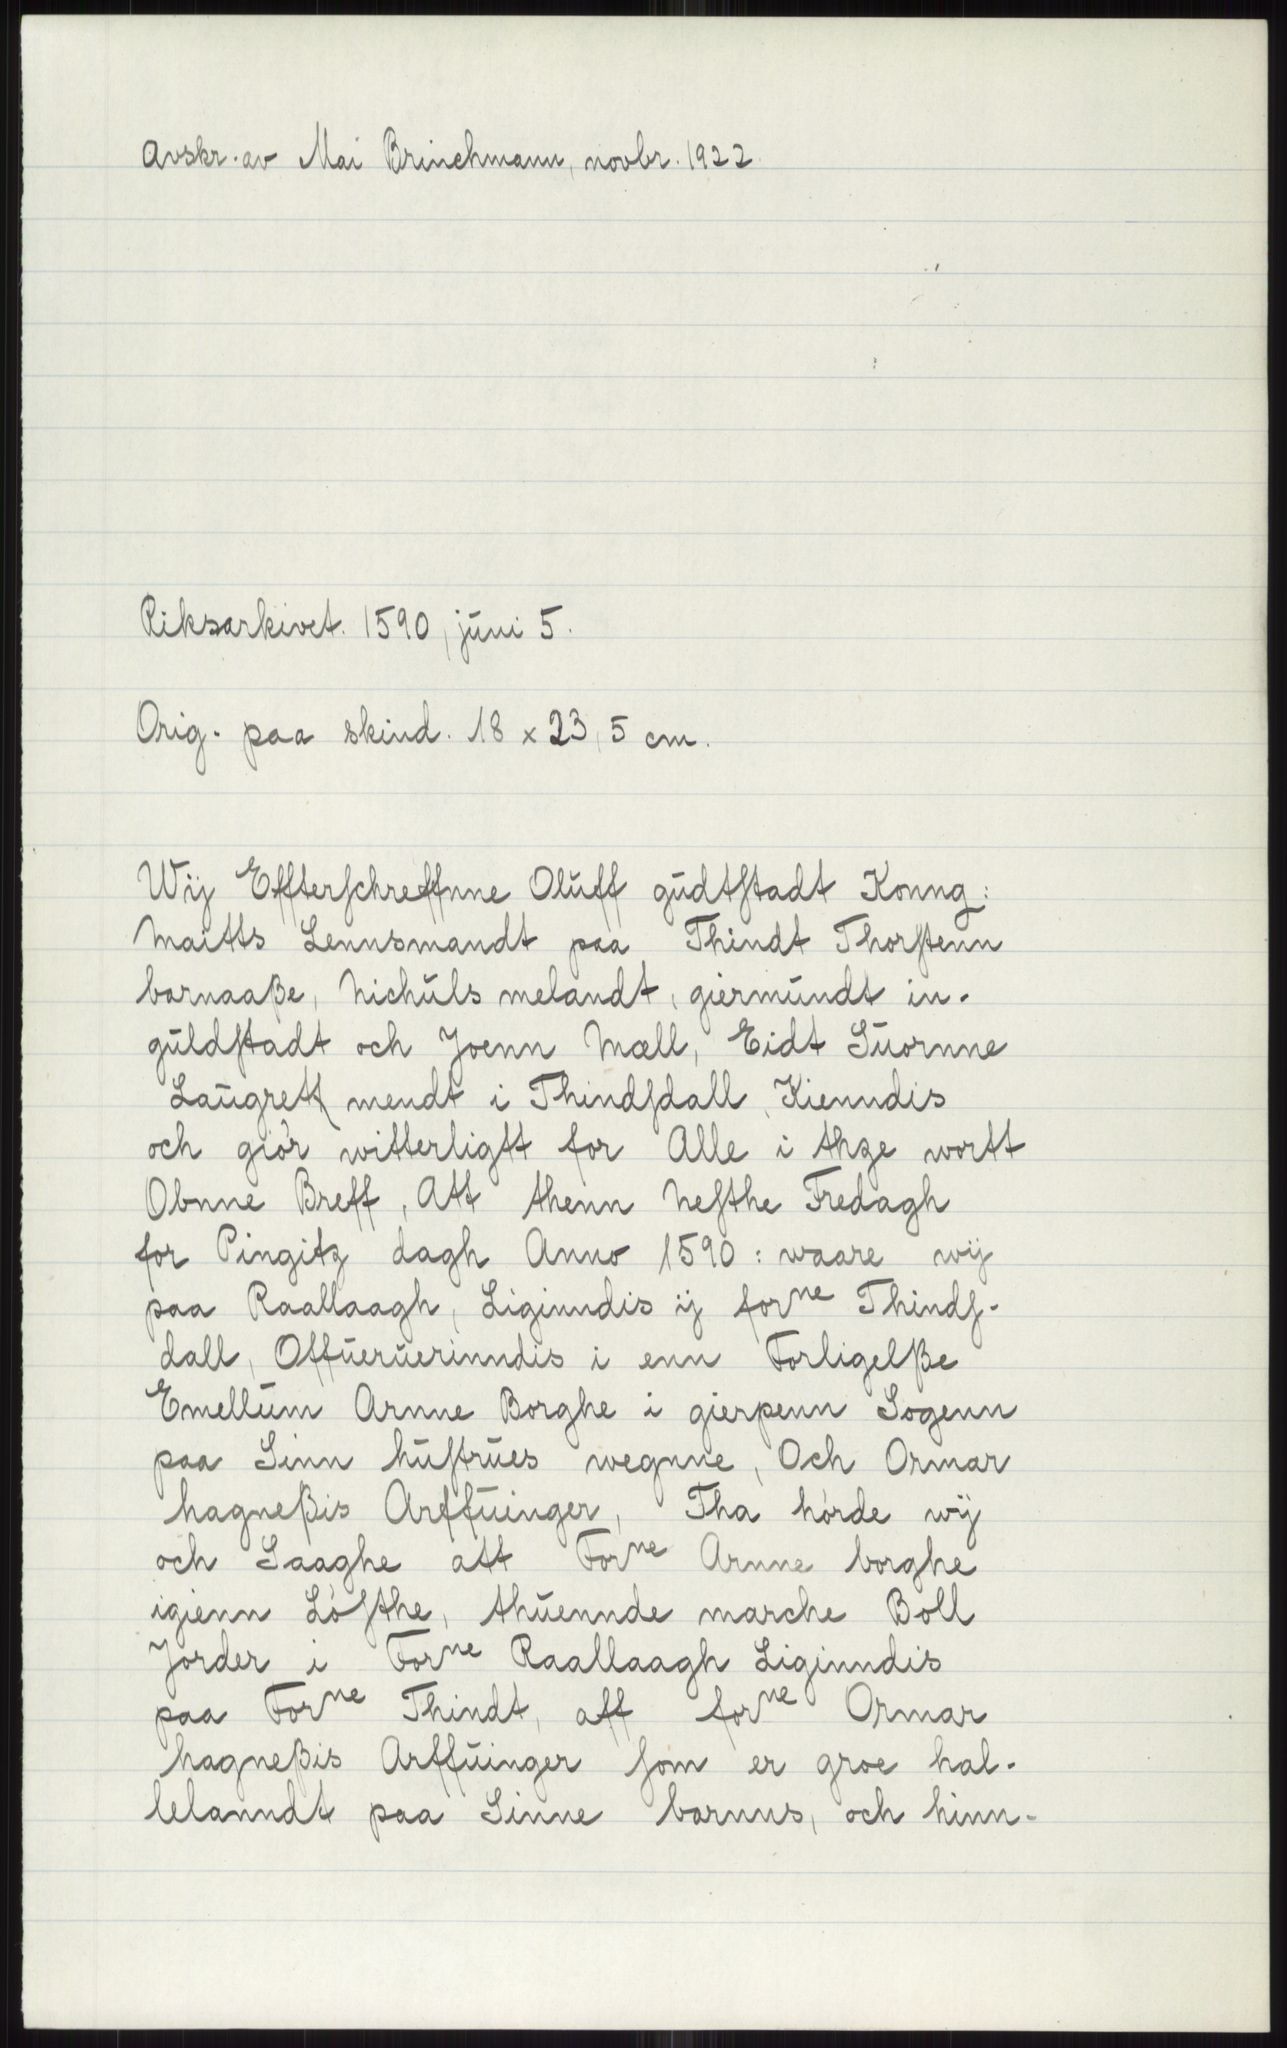 Avskr. av Mai Brinchmann, novbr. 1922.
Riksarkivet. 1590, juni 5.
Orig. paa skind. 18 x 23,5 cm.
Wij Effterſchreffnne Oluff gudtſtadt Konng:
Maitts Lennsmandt paa Thindt Thorſtenn
bornaaße, Nichuls melandt, giermundt in-
guldſtadt och Joenn Mæll, Eidt Suornne
Laugrett mendt i Thindſdall, Kienndis
och giör witterligtt for Alle i thze wortt
Obnne Breff, Att thenn Neſthe Fredagh
for Pingitz dagh Anno 1590: waare wij
paa Raallaagh, Liginndis ij forne Thindſ-
dall, Offueruerinndis i enn Forligelße
Emellum Arnne Borghe i gierpenn Sogenn
paa Sinn huſtrues wegnne, Och Ormar
hagneßis Arffuinger, Tha hörde wij
och Saaghe att Forne Arnne borghe
igienn Löſthe, thuennde marche Boll
Jorder i Forne Raallaagh Liginndis
paa Forne Thindt, aff forne Ormar
hagneßis Arffuinger ſom er groe hal-
lelanndt paa Sinne bornns, och hinn-